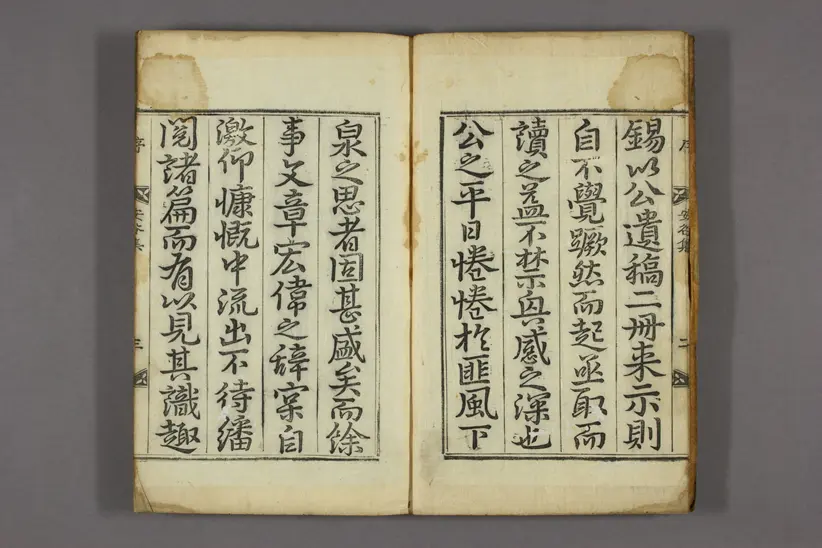 錫以公遺稿二冊来示則
自不覺蹶然而起亟取而
讀之盖不禁其感之深也
公之平日惓惓於匪風下
泉之思者固甚盛矣而餘
事文章宏偉之辞寔自
激仰慷慨中流出不待繙
閱諸篇而有以見其識趣
序
安谷集
二
序
安谷集
三